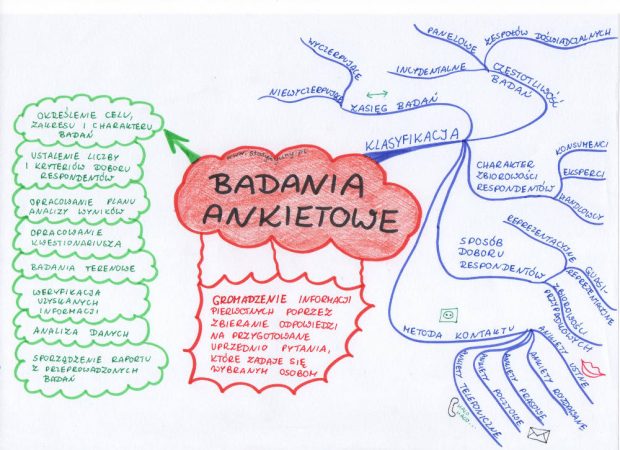 BADANIA
ANKIETOWE
OKREŚLENIE CELU,
ZAKRESU I CHARAKTERU
BADAŃ
USTALENIE LICZBY
I KRYTERIÓW DOBORU
RESPONDENTÓW
OPRACOWANIE PLANU
ANALIZY WYNIKÓW
OPRACOWANIE
KWESTIONARIUSZA
BADANIA TERENOWE
WERYFIKACJA
UZYSKANYCH
INFORMACJI
ANALIZA DANYCH
SPORZĄDZENIE RAPORTU
Z PRZEPROWADZONYCH
BADAŃ
GROMADZENIE INFORMACJI
PIERWOTNYCH POPRZEZ
ZBIERANIE ODPOWIEDZI
NA PRZYGOTOWANE
UPRZEDNIO PYTANIA,
KTÓRE ZADAJE SIĘ
WYBRANYM OSOBOM
KLASYFIKACJA
ZASIĘG BADAŃ
WYCZERPUJĄCE
NIEWYCZERPUJĄCE
CZĘSTOTLIWOŚĆ
BADAŃ
PANELOWE
ZESPOŁÓW DOŚWIADCZALNYCH
INCYDENTALNE
CHARAKTER
ZBIOROWOŚCI
RESPONDENTÓW
KONSUMENCI
EKSPERCI
HANDLOWCY
SPOSÓB
DOBORU
RESPONDENTÓW
REPREZENTACYJNE
QUASI-
REPREZENTACYJNE
ZBIOROWOŚCI
PRZYPADKOWYCH
METODA KONTAKTU
ANKIETY USTNE
ANKIETY ROZDAWANE
ANKIETY PRASOWE
ANKIETY POCZTOWE
ANKIETY TELEFONICZNE